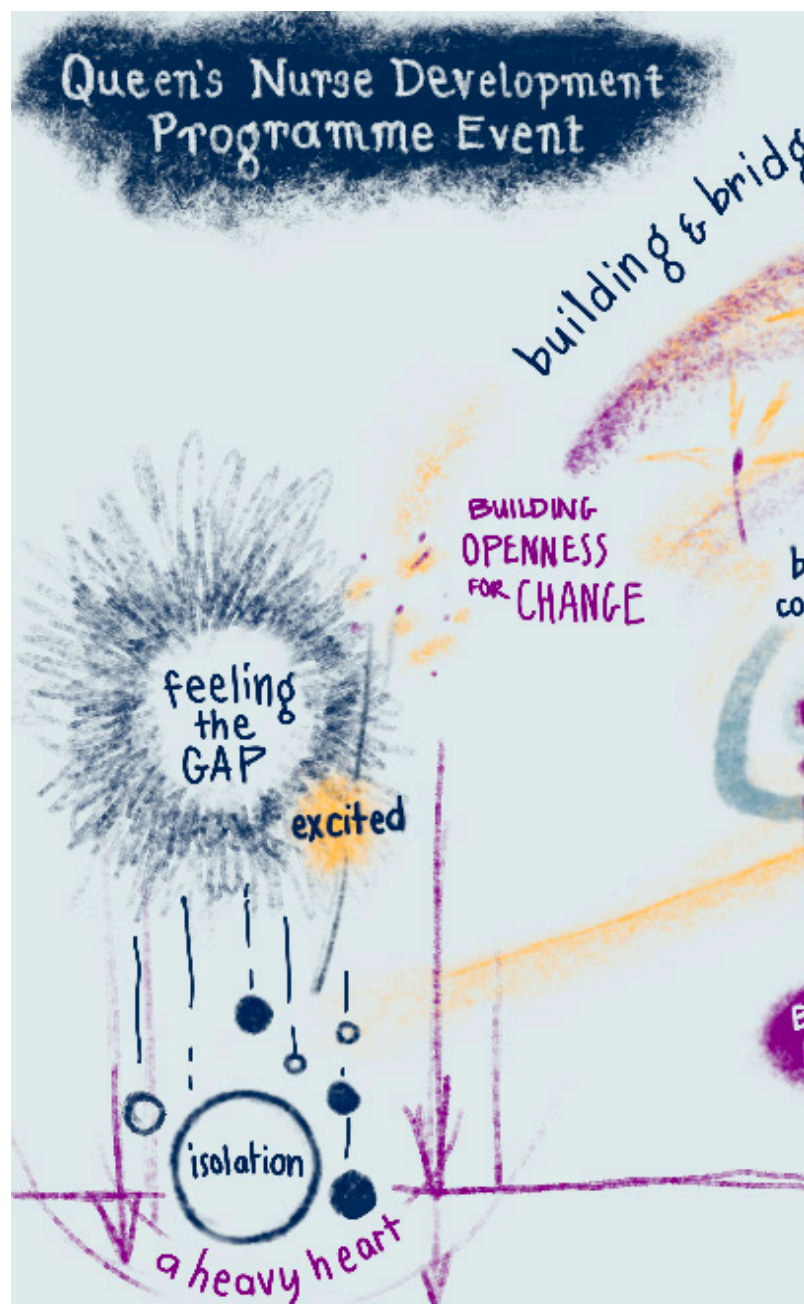 Queen's Nurse Development
Programme Event
building & bridg
BUILDING
OPENNESS
FOR CHANGE
b
co
feeling
the
GAP
excited
isolation
a heavy heart